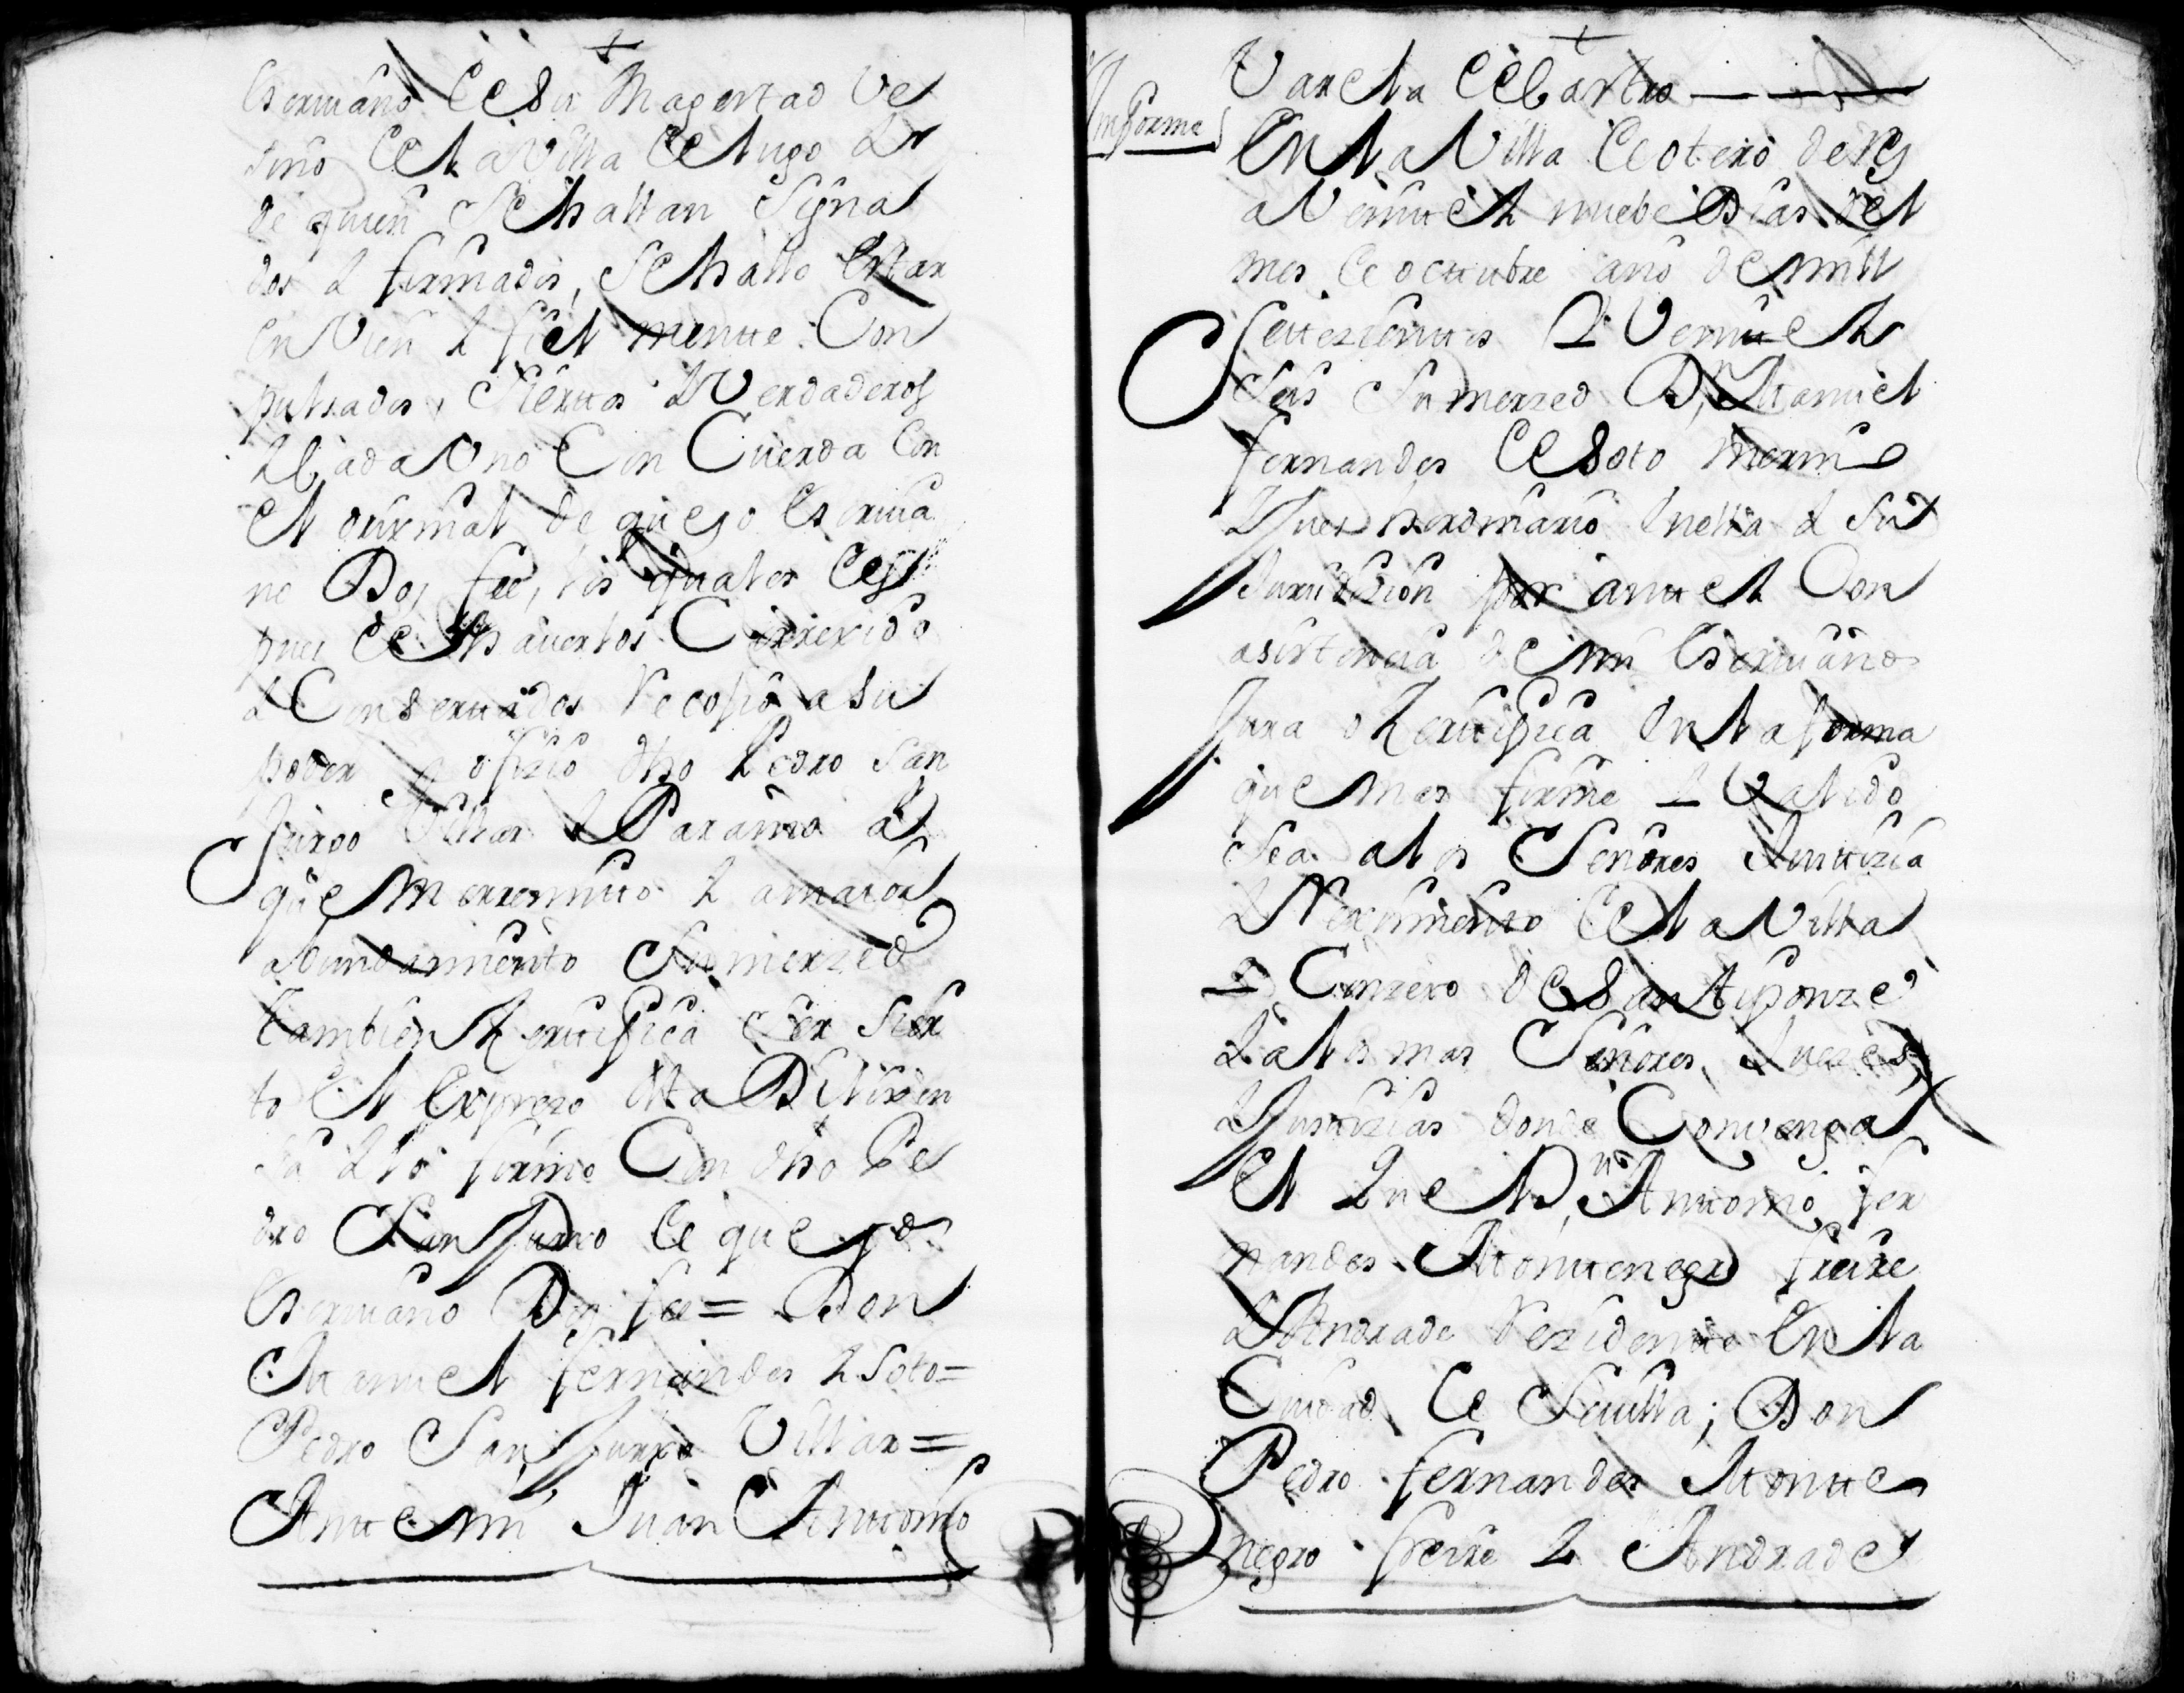 Escriuano de Su Magestad Ve
sino de la Villa de Lugo &
de quien se hallan signa
dos & firmados, se hallo Estar
en Vien & fiel mente Con
pulsados, Siertos & Verdaderos
& Cada Uno Con Cuerda Con
el orixinal de que yo Escriua
no Doy fee, los quales Des
pues de hauerlos Correxido
& Conseruados Recojio a su
poder & ofizio dho Pedro San
Jurjo Villar & Paramo a
que me rremito & a maior
abundamiento Su merzed
tambien Zertifica Ser Sier
to el Expreso dta Dilixen
sia & lo firmo Con dho Pe
dro San Jurxo de que yo
Escriuano Doy fee = Don
Manuel fernandes & Soto =
Pedro San Jurxo Villar =
Ante mi Juan Antonio
Varela de Castro
Informe
En la Villa de otero de Rey
a Veinte & nuebe Dias del
mes de octubre año de mill
Setezientos & Veinte &
Seis Su merzed Dn Manuel
fernandes de Soto Merino
& Juez hordinario en ella & Su
Jurisdizion por ante & Con
asistencia de mi Escriuano
Jura & Zertifica en la forma
que mas firme & Valido
Sea a los Señores Justizia
& Reximiento de la Villa
& Conzexo de Santiponze
& a los mas Señores Juezes
& Justizias donde Conuenga
el Que Dn Antonio fer
nandes Montenegro freire
& Andrade Rezidente En la
Ciudad de Seuilla; Don
Pedro fernandes Monte
negro freire & Andrade